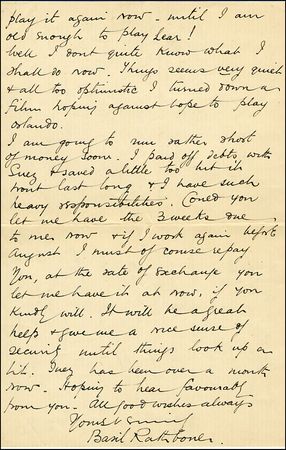 play it again now – until I am
old enough to play Lear!
Well I don't quite know what I
shall do now – Things seem very quiet
& all too optimistic I turned down a
film hoping against hope to play
Orlando.
I am going to run rather short
of money soon. I paid off debts with
& saved a little too but it
wont last long & I have such
heavy responsibilities. Could you
let me have the 3 weeks due
to me now & if I work again before
August I must of course repay
you, at the rate of exchange you
let me have it at now, if you
kindly will. It will be a great
help & give me a nice sense of
security until things look up a
bit. has been over a month
now. Hoping to hear favourably
from you. All good wishes always
Yours
Basil Rathbone.